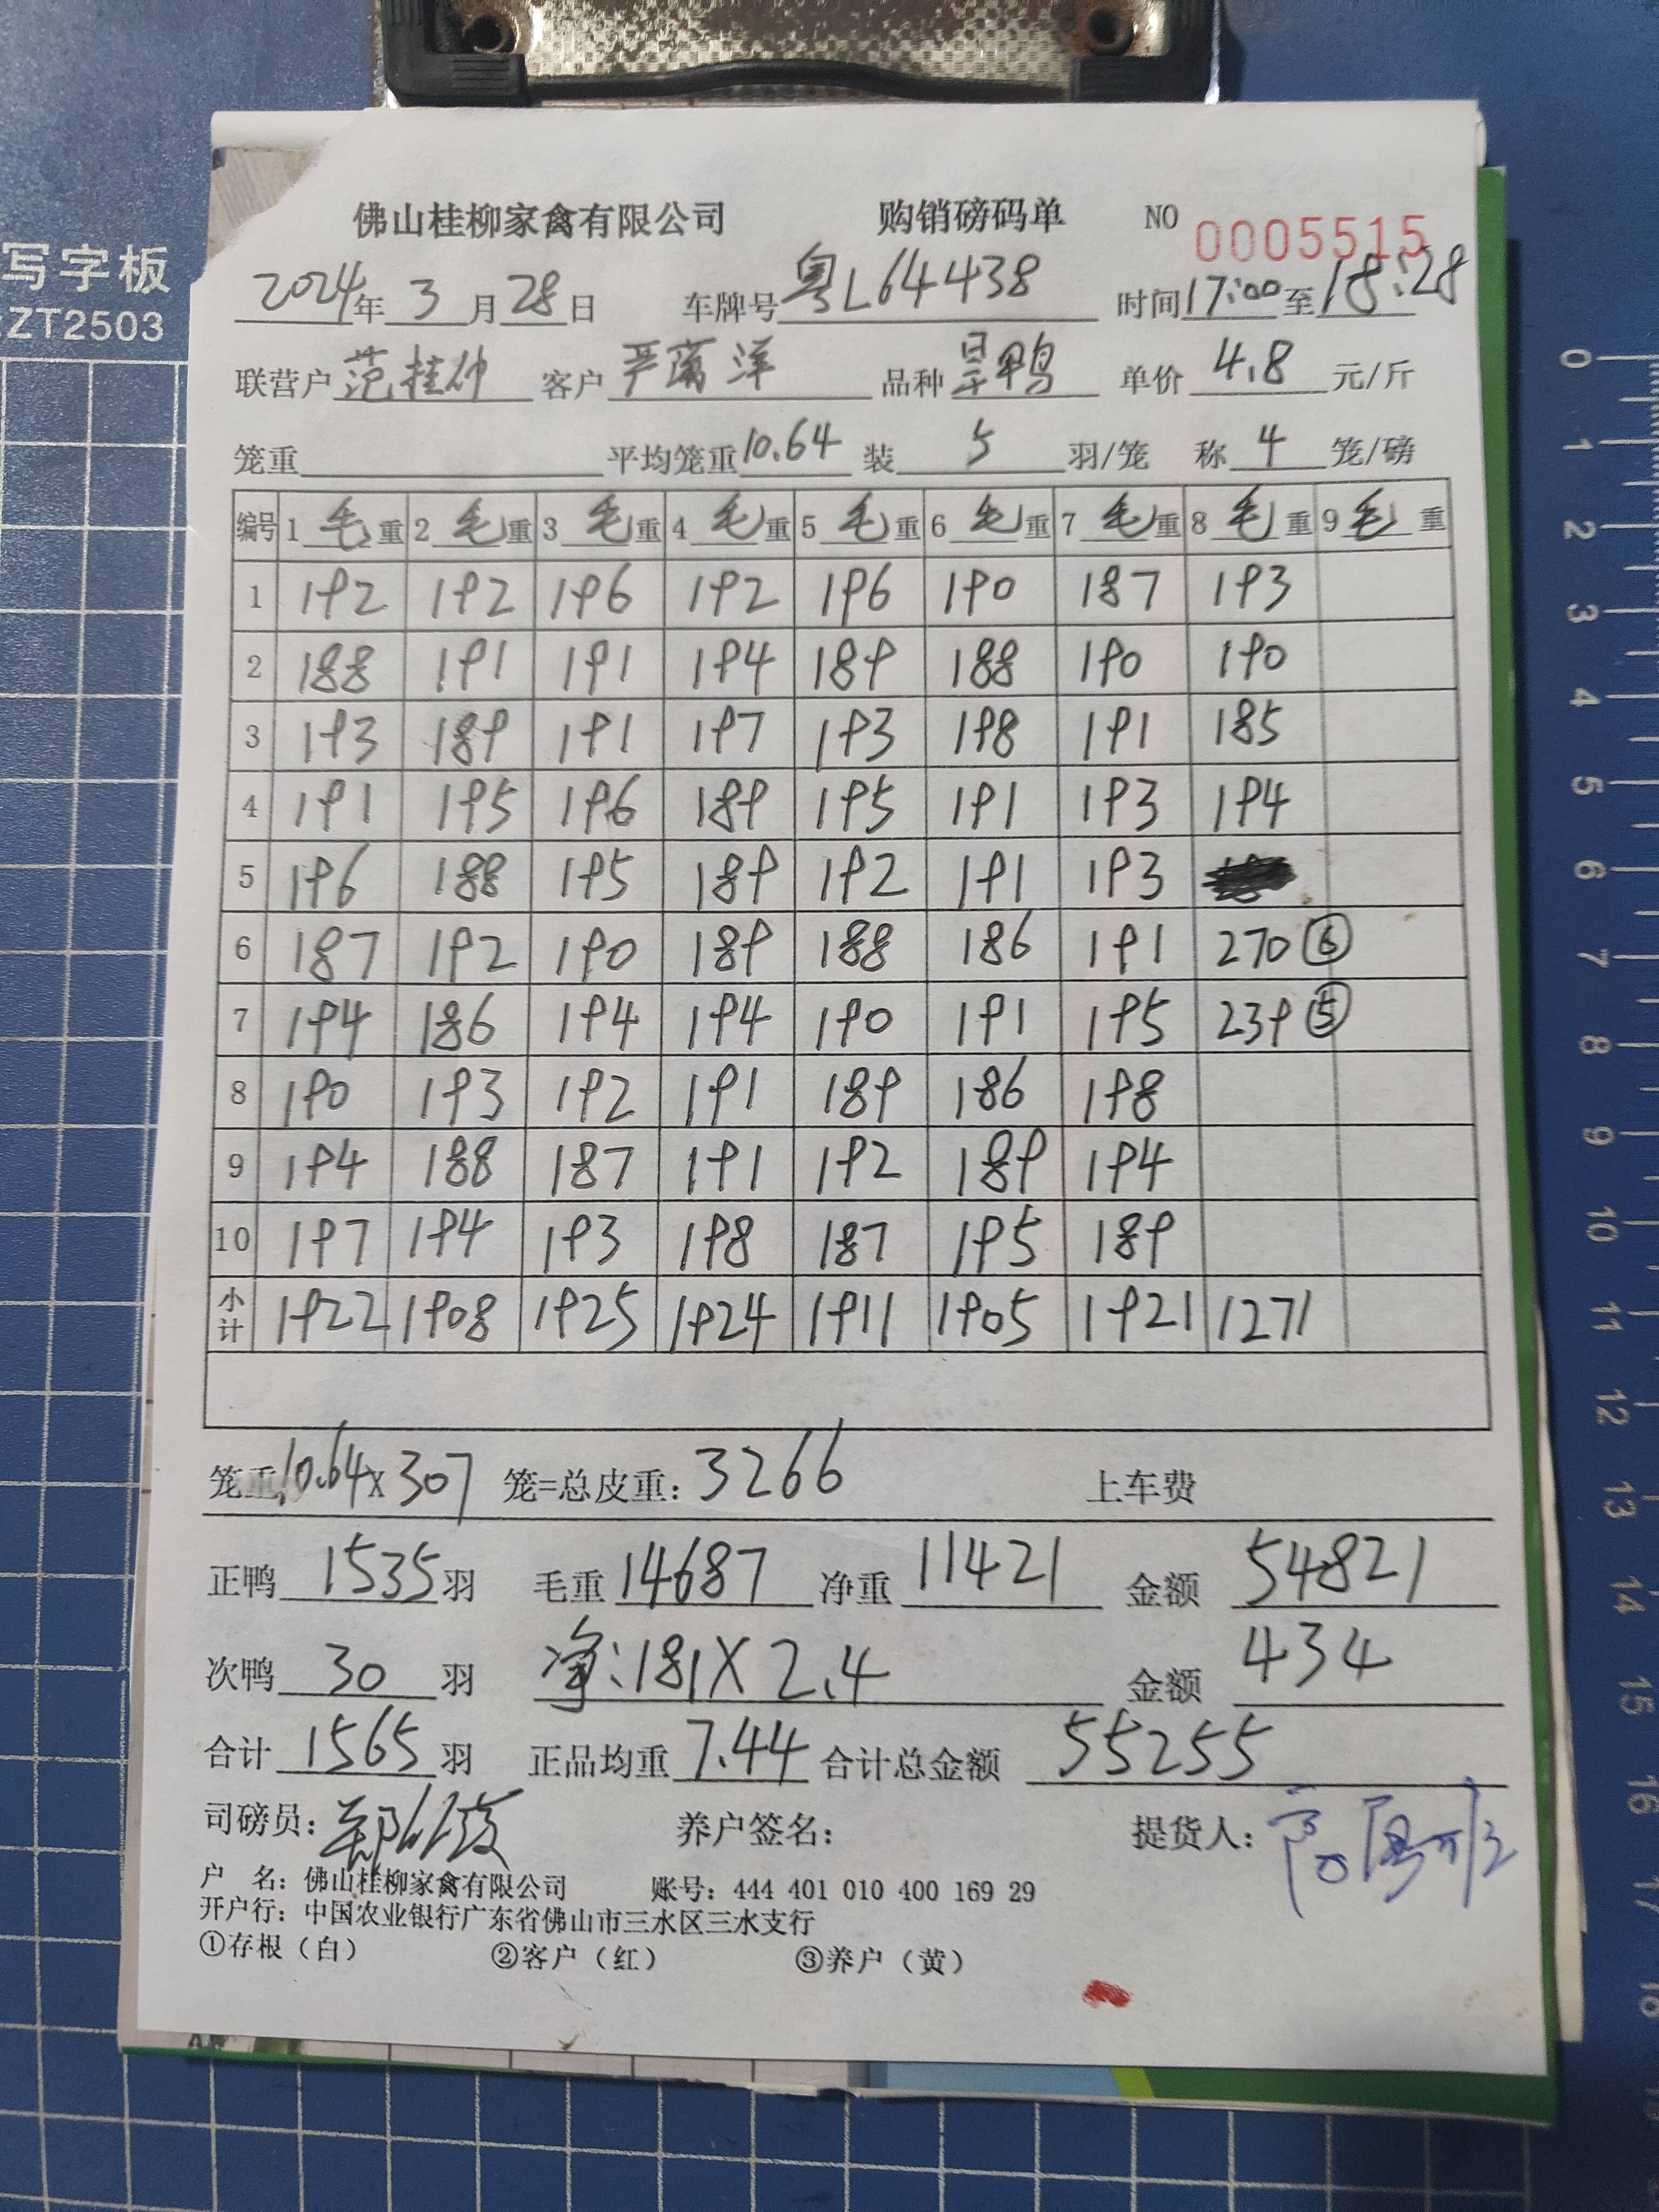 写字板
ZT2503
佛山桂柳家禽有限公司 购销磅码单 NO 0005515
2024年3月28日 车牌号粤L64438 时间17:00至18:28
联营户范桂 客户严 洋 品种旱鸭 单价4.8元/斤
笼重 平均笼重10.64 装5羽/笼 称4笼/磅
编号 1毛重 2毛重 3毛重 4毛重 5毛重 6毛重 7毛重 8毛重 9毛重
1 192 192 196 192 196 190 187 193
2 188 191 191 194 189 188 190 190
3 193 189 191 197 193 198 191 185
4 191 195 196 189 195 191 193 194
5 196 188 195 189 192 191 193
6 187 192 190 189 188 186 191 270⑥
7 194 186 194 194 190 191 195 239⑤
8 190 193 192 191 189 186 198
9 194 188 187 191 192 189 194
10 197 194 193 198 187 195 189
小计 1922 1908 1925 1924 1911 1905 1921 1271
笼重10.64×307 笼=总皮重：3266 上车费
正鸭1535羽 毛重14687 净重11421 金额54821
次鸭30羽 净:181×2.4 金额434
合计1565羽 正品均重7.44 合计总金额55255
司磅员：郑 养户签名： 提货人：
户 名：佛山桂柳家禽有限公司 账号：444 401 010 400 169 29
开户行：中国农业银行广东省佛山市三水区三水支行
①存根（白） ②客户（红） ③养户（黄）
0
1
2
3
4
5
6
7
8
9
10
11
12
13
14
15
16
17
18